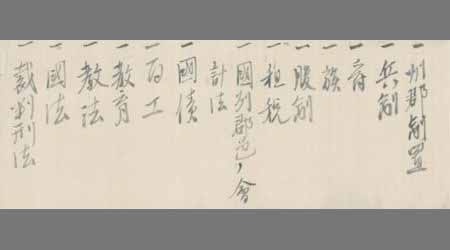 一 州郡制置
一 兵制
一
一 族
一 服制
一 租税
一 國別郡邑ノ會
計法
一 國債
一 百工
一 教育
一 教法
一 國法
一 裁判刑法